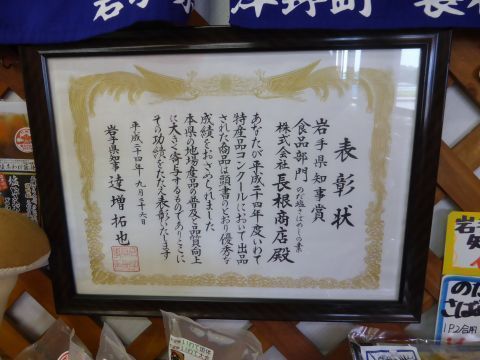 表彰状
岩手県知事賞
食品部門 のだ塩さばめしの素
株式会社 長根商店 殿
あなたが平成二十四年度いわて
特産品コンクールにおいて出品
された商品は頭書のとおり優秀な
成績をおさめられました
本県の地場産品の普及と品質向上
に大きく寄与するものでありここに
その功績をたたえ表彰いたします
平成二十四年 九月二十六日
岩手県知事 達増拓也
岩手
のだ
さば
1P2合用